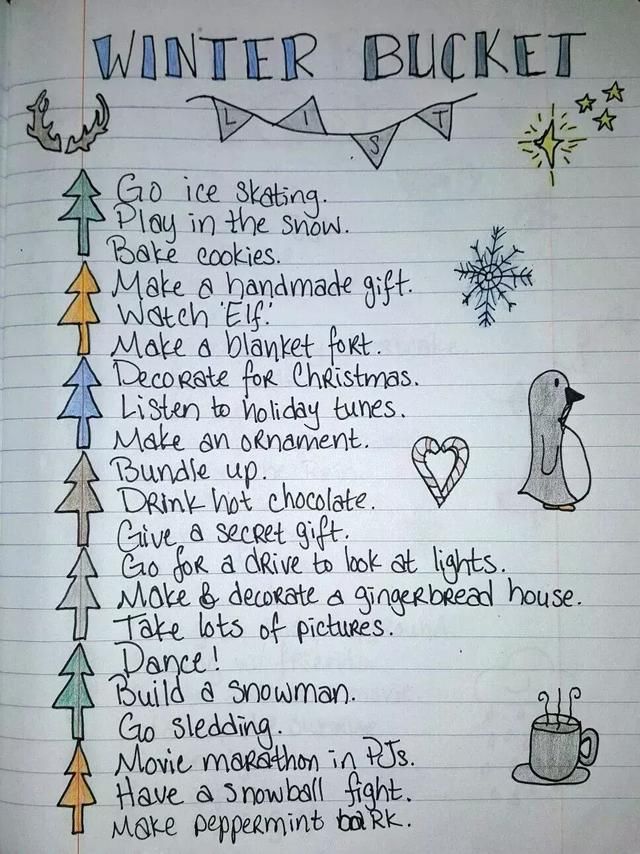 WINTER BUCKET
LIST
Go ice skating.
Play in the snow.
Bake cookies.
Make a handmade gift.
Watch 'Elf'.
Make a blanket fort.
Decorate for Christmas.
Listen to holiday tunes.
Make an ornament.
Bundle up.
Drink hot chocolate.
Give a secret gift.
Go for a drive to look at lights.
Make & decorate a gingerbread house.
Take lots of pictures.
Dance!
Build a snowman.
Go sledding.
Movie marathon in PJs.
Have a snowball fight.
Make peppermint bark.